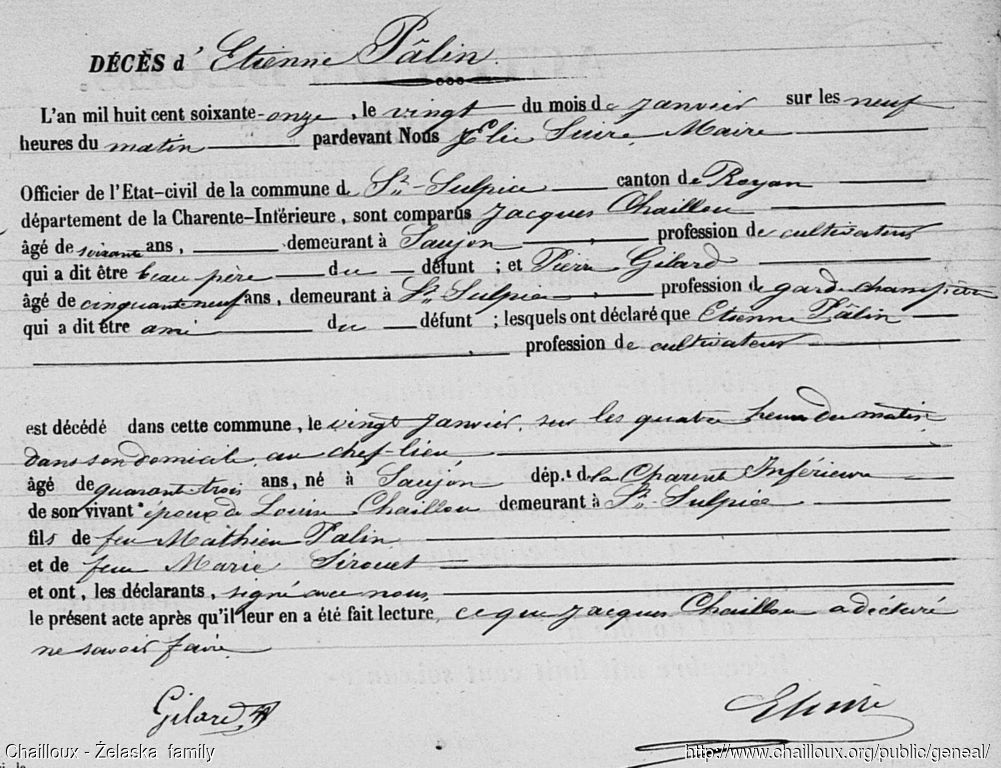 DÉCÈS d' Etienne Pâlin.
L'an mil huit cent soixante-onze, le vingt du mois de Janvier sur les neuf
heures du matin pardevant Nous Elie Suire, Maire
Officier de l'Etat-civil de la commune de St-Sulpice canton de Royan
département de la Charente-Intérieure, sont comparus Jacques Chaillou
âgé de soixante ans, demeurant à Saujon, profession de cultivateur
qui a dit être beau père du défunt ; et Pierre Gilard
âgé de cinquante neuf ans, demeurant à St Sulpice, profession de garde champêtre
qui a dit être ami du défunt ; lesquels ont déclaré que Etienne Pâlin
profession de cultivateur
est décédé dans cette commune, le vingt Janvier, sur les quatre heures du matin
dans son domicile, au chef-lieu
âgé de quarante trois ans, né à Saujon dép.t de la Charente Inférieure
de son vivant époux de Louise Chaillou demeurant à St Sulpice
fils de feu Mathieu Palin
et de feue Marie Sirouet
et ont, les déclarants, signé avec nous
le présent acte après qu'il leur en a été fait lecture, ce que Jacques Chaillou a déclaré
ne savoir faire.
Gilard ESuire
Chailloux - Želaska family http://www.chailloux.org/public/geneal/